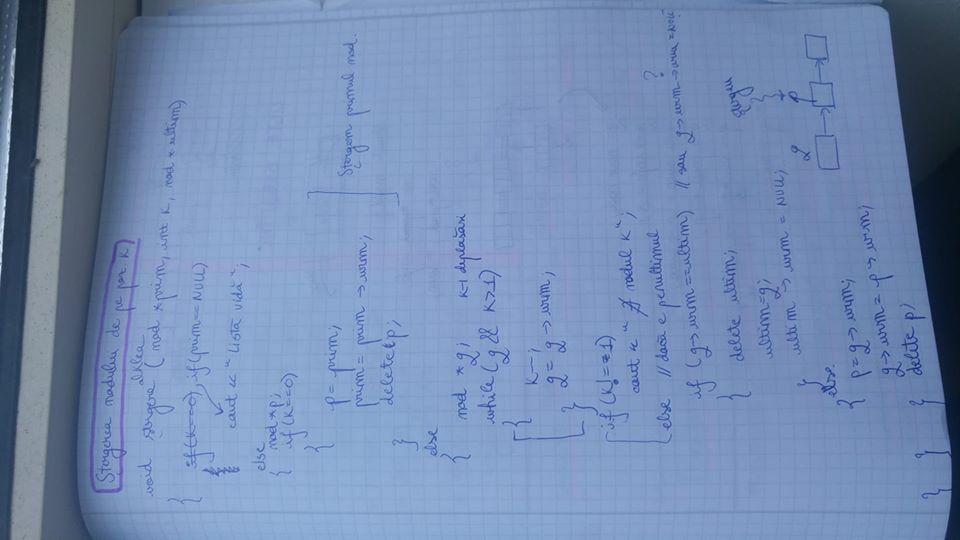 Ștergerea nodului de pe poz. k
void ștergere (nod *prim, int k, nod *ultim)
{ if (k==0), if (prim == NULL)
cout << "Lista vidă";
else
{ nod *p;
if (k==0)
{
p = prim;
prim = prim → urm;
delete p;
}
Ștergem primul nod.
else
{
nod *q; k-1 deplasări
while (q && k>1)
{
k--;
q = q → urm;
}
if (k!=1)
cout << " nodul k";
else // dacă e penultimul
if (q→urm==ultim) // sau q→urm→urm=NULL ?
{ delete ultim;
ultim=q;
ultim → urm = NULL;
}
else
{ p=q→urm;
q→urm = p→urm;
delete p;
}
}
}
}
q
p